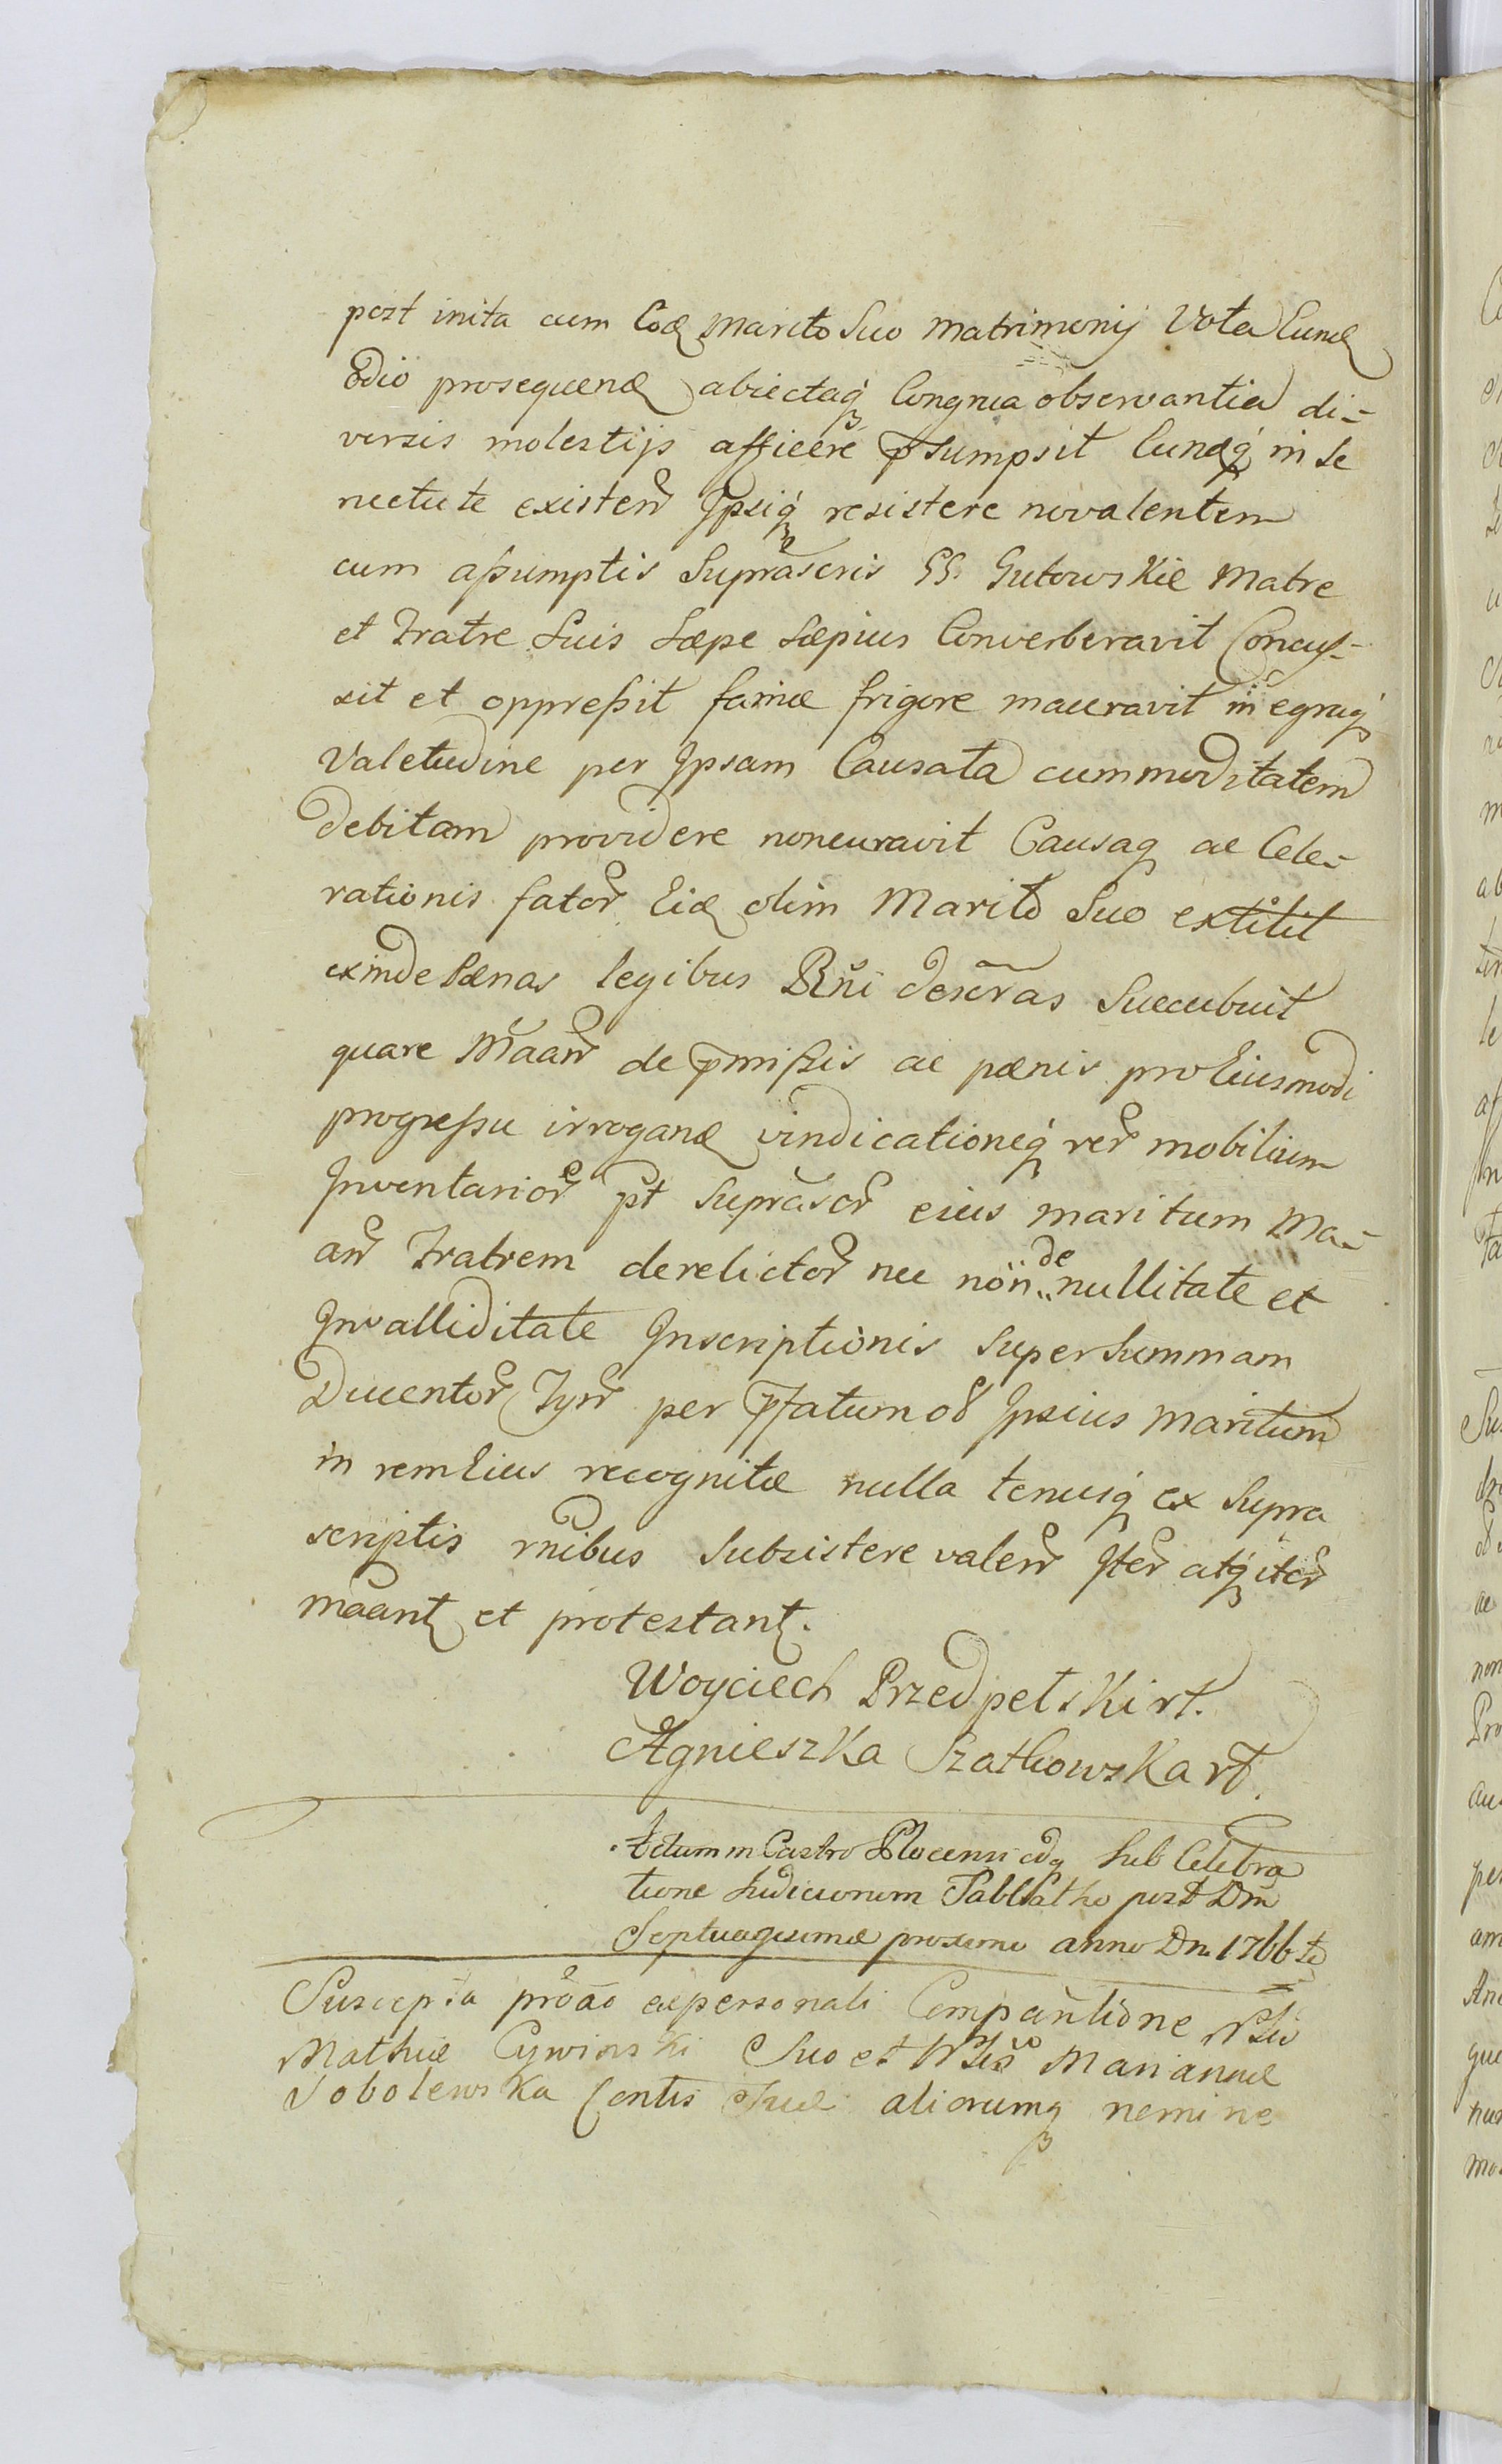 post inita cum Eod marito Suo matrimonij Vota Eund
odio prosequend abiectaq Congrua observantia di-
versis molestijs afficere psumpsit Eundq in Se
nectute existen Ipsiq resistere novalentem
cum aßumptis Suprascris GG. Gutowskie Matre
et Fratre Suis Sæpe sæpius Converberavit Concus-
sit et oppreßit famæ frigore maceravit in egraq
Valetudine per Ipsam Causata cummoditatem
debitam providere noncuravit Causaq ac Cele-
rationis fator Eid olim Marito Suo extitit
exinde Pænas legibus Rni descras Succubuit
quare Maan de pmißis ac pænis pro Eiusmodi
progreßu irrogand vindicationeq rer mobilium
Inventarior pt suprascr eius maritum Ma-
an Fratrem derelictor nec non de nullitate et
Invalliditate Inscriptionis super Summam
Ducentor Tyn per pfatum oł Ipsius Maritum
in rem Eius recognitæ nulla tenusq ex Supra
scriptis rnibus Subsistere valen Iter atq iter
maant et protestant.
Woyciech Przedpełski rt.
Agnieszka Szatkowska rt.
Actum in Castro Plocensi cdq Sub Celebra
tione Judiciorum Sabbatho post Dm
Septuagesimæ proximo anno Dn. 1766to
Suscepta proao ac personali Comparitione Nlis
Mathiæ Cywinski Suo et Nlis Mariannæ
Sobolewska Contis Suæ aliorumq nemine